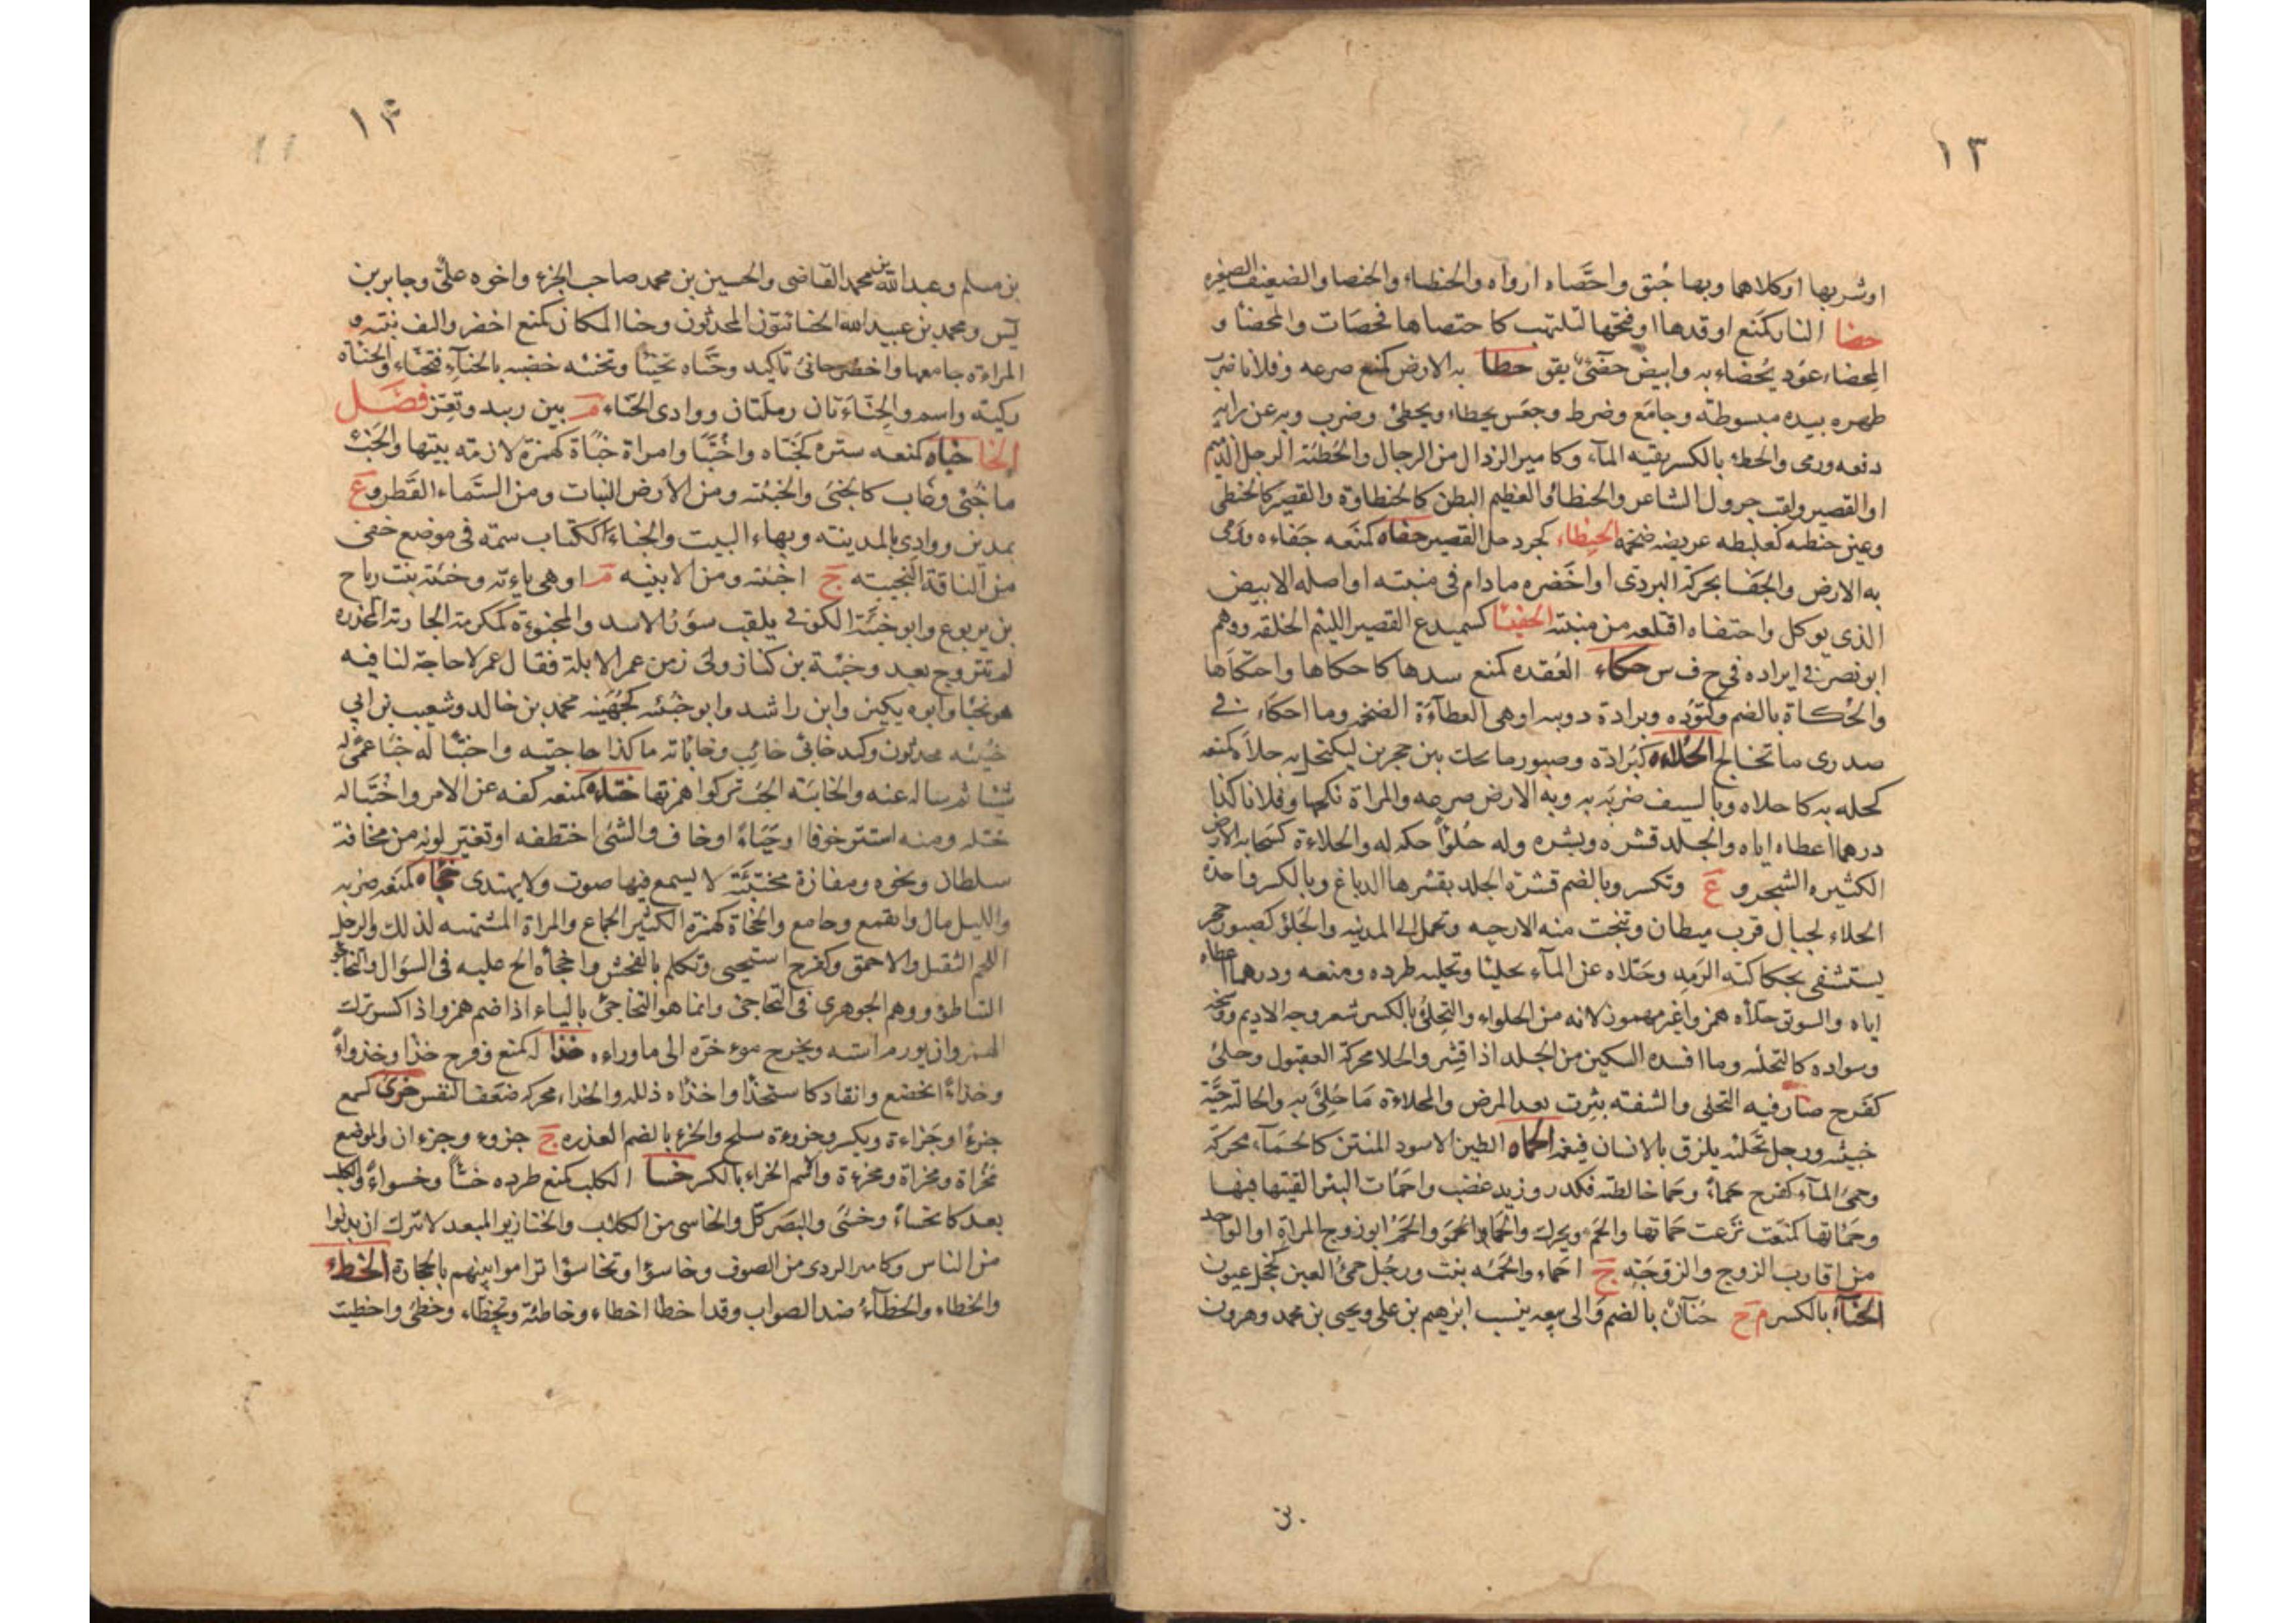 ١٣
او شربها او كلاهما وبها جُبق واحصَاه ارواه والحنظاء والحنصا والضعيف الصغير
حضا النار كمَنع اوقدها او فتحها لتلتهب كا حتضاها فحضات والمحضأ و
المِحضاء عود يُحضاء به وابيض حضئ يقق حطا به الارض كمنع صرعه وفلانا ضرب
ظهره بيده مبسوطة وجامَع وضرط وجعَس يحطاء ويحطئ وضرب وبه عن رايه
دفعه ورمى والحطء بالكسر بقيه المآء وكامير الرذال من الرجال والحُطيئة الرجل الذميم
او القصير ولقب جرول الشاعر والحنطأو العظيم البطن كالحنطاوة والقصير كالحنطئ
وعنز حنطئه كعلبطه عريضه ضخمه الحنظاء كجردحل القصير حفاه كمنعه جفاءه ورمى
به الارض والحفأ محركة البردى او اخضره مادام فى منبته او اصله الابيض
الذى يوكل واحتفاه اقتلعه من منبته الحفيسا كسميدع القصير اللئيم الخلقه ووهم
ابو نصر فى ايراده فى ح ف س حكاء العُقده كمنع سدها كا حكاها واحتكاها
والحُكاة بالضم وكتؤده وبرادة دويبه او هى العظآءَة الضخمه وما احكاء فى
صدرى ما تخالج الحُلاءه كبُرادة وصبور ما يحك بين حجرين ليكتحل به حلأ كمنعه
كحله به كا حلاه وبالسيف ضربه به وبه الارض صرعه والمراة نكحها وفلانا كذا
درهما اعطاه اياه والجلد قشره وبشره وله حُلوْأً حكه له والحلاءة كسَحابه الارض
الكثيره الشجر و ع وتكسر وبالضم قشرة الجلد يقشرها الدباغ وبالكسر واحدة
الحلاء لجبال قرب ميطان وتنحت منه الارحيه وتحمل الى المدينه والحَلؤ كصبور حجر
يستشفى بحكاكته الرَمِد وحَلاه عن المآء تحليئا وتحليه طرده ومنعه ودرهما اعطاه
اياه والسويق حلأه همز واغير مهموز لانه من الحلواء والتِحلئُ بالكسر شعر وجه الاديم ووسخه
وسواده كالتحلئه وما افسده السكين من الجلد اذا قشِر والحلا محركة العقبول وحلئ
كفَرح صَار فيه التحلى والشفته بثرت بعد المرض والمحلاءة مَا حُلِئَ به والحالئة حيَّة
خبيثه ورجل تحلئه يلزق بالانسان فيغمه الحماه الطين الاسود المنتن كالحمَآء محركة
وحمئ المآء كفرح حَمأً وحَما خالطته فكدر وزيد غضب واحمَات البئر القيتها فيها
وحَمَاتها كمنعَت نزعت حَماتها والحَمء ويحرك والحَمَا والحَموُ والحَمُ ابو زوج المراة او الواحد
من اقارب الزوج والزوجَته ج احماء والحَمئه بنت ورجُل حمئ العين كخجل عيون
الحنآء بالكسر م ح حُنآن بالضم والى بيعه ينسب ابرهيم بن على ويحيى بن محمد وهرون
١٤
بن مسلم وعبدالله بن محمد القاضى والحسين بن محمد صاحب الجزء واخوه علىٌّ وجابر بن
يس ومحمد بن عبيدالله الحنائيّون المحدثون وحنا المكان كمنع اخضر والتف نبته و
المراءة جامعها واخضر حانئ تاكيد وحَنّاه تحنيئا وتحنئه خضبه بالحنآءِ فتحنّاء والحنّاة
ركيّه واسم والحِنّاءَتان رملتان ووادى الحنّاء م بين زبيد وتعِز فصَل
الخا خباه كمنعه ستره كخبّاه واختبَا وامراة خُبَاة كهمزة لازمة بيتها والخَبْء
ما خُبئ وغاب كالخبئ والخبئته ومن الارض النبات ومن السَّماء القَطر و ع
بمدين ووادٍ بالمدينه وبهاء البيت والخباء ككتاب سمة فى موضع خفى
من الناقة النجيبته ج اخبئه ومن الابنيه م او هى يايئة وخبئة بنت رباح
بن يربوع وابو خبيئة الكوفى يلقب سؤر الاسد والمخبؤءة كمكرمة الجارية المخدره
لم تتزوج بعد وخبئة بن كناز ولى زمن عمر الابلة فقال عمر لا حاجة لنا فيه
هو يخبأ وابوه يكنز وابن راشد وابو خبيئه كجُهَينه محمد بن خالد وشعيب بن ابي
خبيئه محدثون وكيد خابئ خائب وخاباته ما كذا حاجيته واختبا له خبأ عمَّى له
شيئا ثم ساله عنه والخابيَة الحُب تركوا همزتها ختاه كمنعه كفه عن الامر واختتا له
ختله ومنه استتر خوفا او حَيَاءً او خاف والشئ اختطفه او تغير لونه من مخافة
سلطان ونحوه ومفازة مختتئة لا يسمع فيها صوت ولا يهتدى خجاه كمَنعَه ضربه
والليل مال وانقمع وجامع والخجاة كهمزة الكثير الجماع والمراة المشتهيه لذلك والرجل
اللحم الثقيل والاحمق وكفرح استحيى وتكلم بالفحش واخجأه الح عليه فى السؤال والتخاجؤ
التباطؤ ووهم الجوهرى فى التخاجئ وانما هو التخاجئ بالياء اذا ضم همز واذا كسر ترك
الهمز وان يورم استه ويخرج موءخره الى ماوراءه خذا له كمنع وفرح خذأً وخذواءً
وخذأً انخضع وانقاد كاستخذا واخذاه ذلله والخذاء محركه ضعف النفس خرئ كسمع
خرءً او خرَاءة ويكسر وخروءة سلح والخرء بالضم العذره ج خروء وخرءان والموضع
مخراة ومخراة ومخرءة والاسم الخراء بالكسر خسا الكلب كمنع طرده خسأً وخسواءً والكلب
بعد كانخساءَ وخسئ والبصَر كَلّ والخاسى من الكلاب والخنازير المبعد لا يترك ان يدنوا
من الناس وكامير الردى من الصوف وخاسؤا وتخاسؤا تراموا بينهم بالحجارة الخطء
والخطاء والخطآءُ ضد الصواب وقد اخطأ اخطاء وخاطئة وتخطاء وخطئ واخطيت